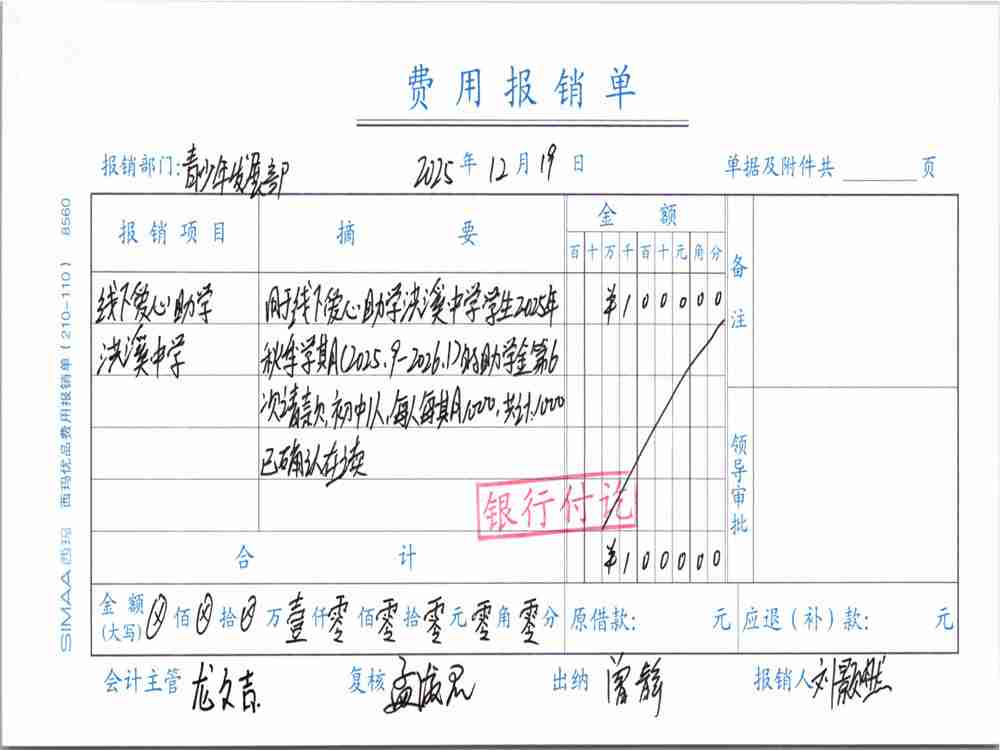 费用报销单
报销部门:青少年发展部 2025年12月19日 单据及附件共 页
报销项目 摘要 金额 备注
百十万千百十元角分
线下爱心助学 用于线下爱心助学洪溪中学学生2025年 ¥100000
洪溪中学 秋季学期(2025.9-2026.1)的助学金第6
次请款,初中1人,每人每期1000,共计:1000
已确认在读
领导审批
银行付讫
合计 ¥100000
金额(大写)⊗佰⊗拾⊗万壹仟零佰零拾零元零角零分 原借款: 元 应退(补)款: 元
会计主管 龙文吉 复核 出纳 曾静 报销人 刘颢然
SIMAA西玛 西玛优品费用报销单(210-110) 8560